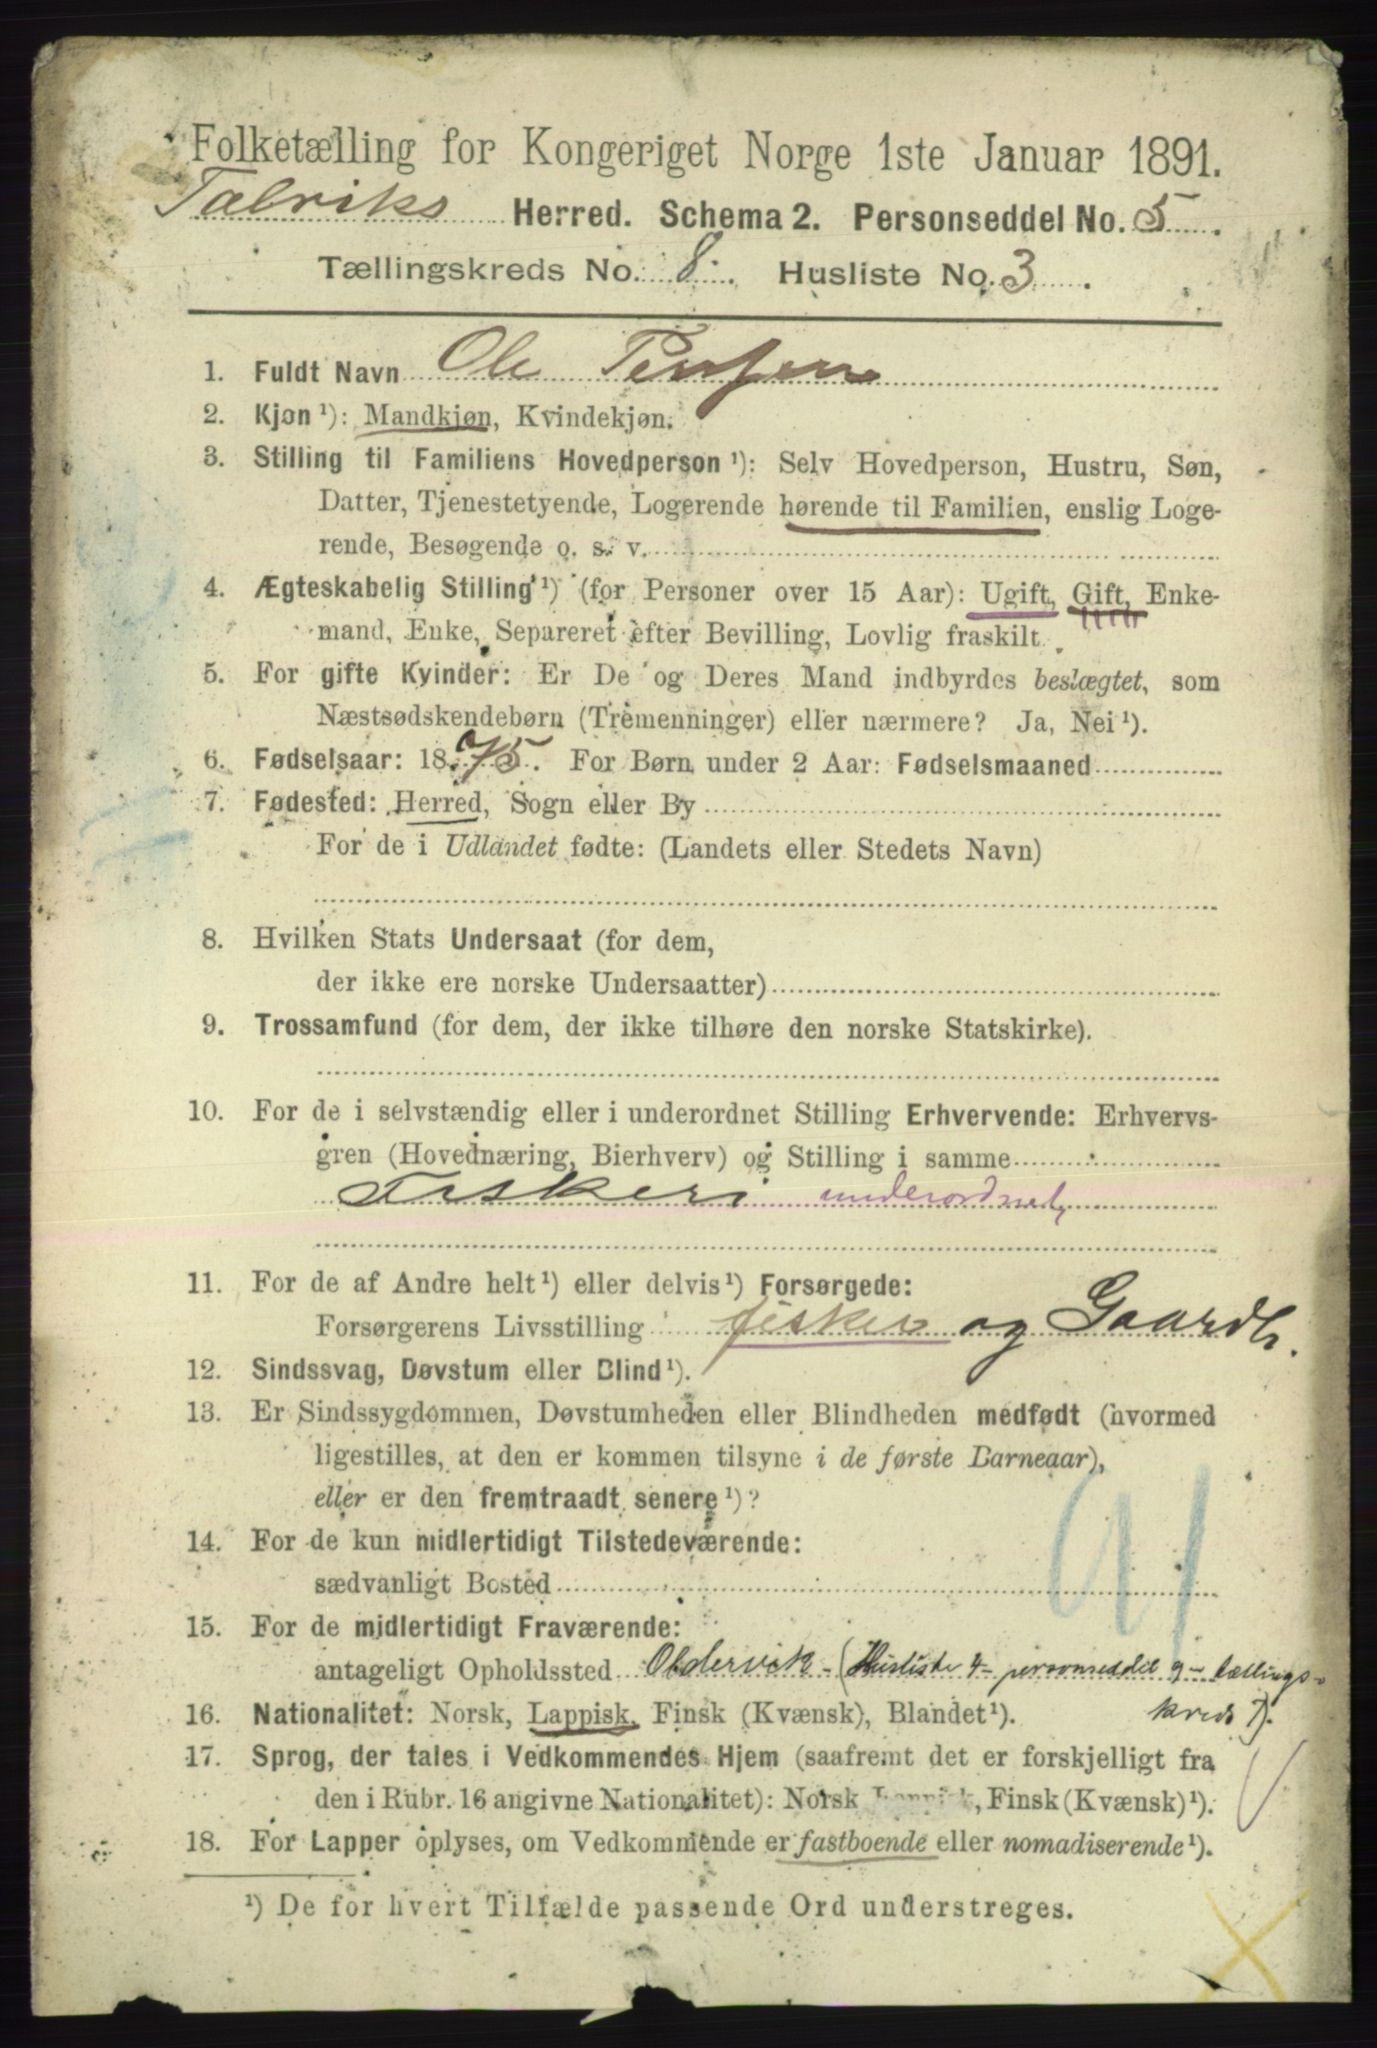 Folketælling for Kongeriget Norge 1ste Januar 1891.
Talviks Herred. Schema 2. Personseddel No. 5.
Tællingskreds No. 8. Husliste No. 3.
1. Fuldt Navn Ole
2. Kjøn ¹): Mandkjøn, Kvindekjøn.
3. Stilling til Familiens Hovedperson ¹): Selv Hovedperson, Hustru, Søn,
Datter, Tjenestetyende, Logerende hørende til Familien, enslig Loge-
rende, Besøgende o. s. v.
4. Ægteskabelig Stilling ¹) (for Personer over 15 Aar): Ugift, Gift, Enke-
mand, Enke, Separeret efter Bevilling, Lovlig fraskilt.
5. For gifte Kvinder: Er De og Deres Mand indbyrdes beslægtet, som
Næstsødskendebørn (Tremenninger) eller nærmere? Ja, Nei ¹).
6. Fødselsaar: 1875. For Børn under 2 Aar: Fødselsmaaned
7. Fødested: Herred, Sogn eller By
For de i Udlandet fødte: (Landets eller Stedets Navn)
8. Hvilken Stats Undersaat (for dem,
der ikke ere norske Undersaatter)
9. Trossamfund (for dem, der ikke tilhøre den norske Statskirke).
10. For de i selvstændig eller i underordnet Stilling Erhvervende: Erhvervs-
gren (Hovednæring, Bierhverv) og Stilling i samme
Fiskeri underordnet
11. For de af Andre helt ¹) eller delvis ¹) Forsørgede:
Forsørgerens Livsstilling fisker og Gaardb.
12. Sindssvag, Døvstum eller Blind ¹).
13. Er Sindssygdommen, Døvstumheden eller Blindheden medfødt (hvormed
ligestilles, at den er kommen tilsyne i de første Barneaar),
eller er den fremtraadt senere ¹)?
14. For de kun midlertidigt Tilstedeværende:
sædvanligt Bosted
15. For de midlertidigt Fraværende:
antageligt Opholdssted Oldervik - (Husliste 4 - personseddel 9 - tællings-
kreds 7).
16. Nationalitet: Norsk, Lappisk, Finsk (Kvænsk), Blandet ¹).
17. Sprog, der tales i Vedkommendes Hjem (saafremt det er forskjelligt fra
den i Rubr. 16 angivne Nationalitet): Norsk Lappisk, Finsk (Kvænsk) ¹).
18. For Lapper oplyses, om Vedkommende er fastboende eller nomadiserende ¹).
¹) De for hvert Tilfælde passende Ord understreges.